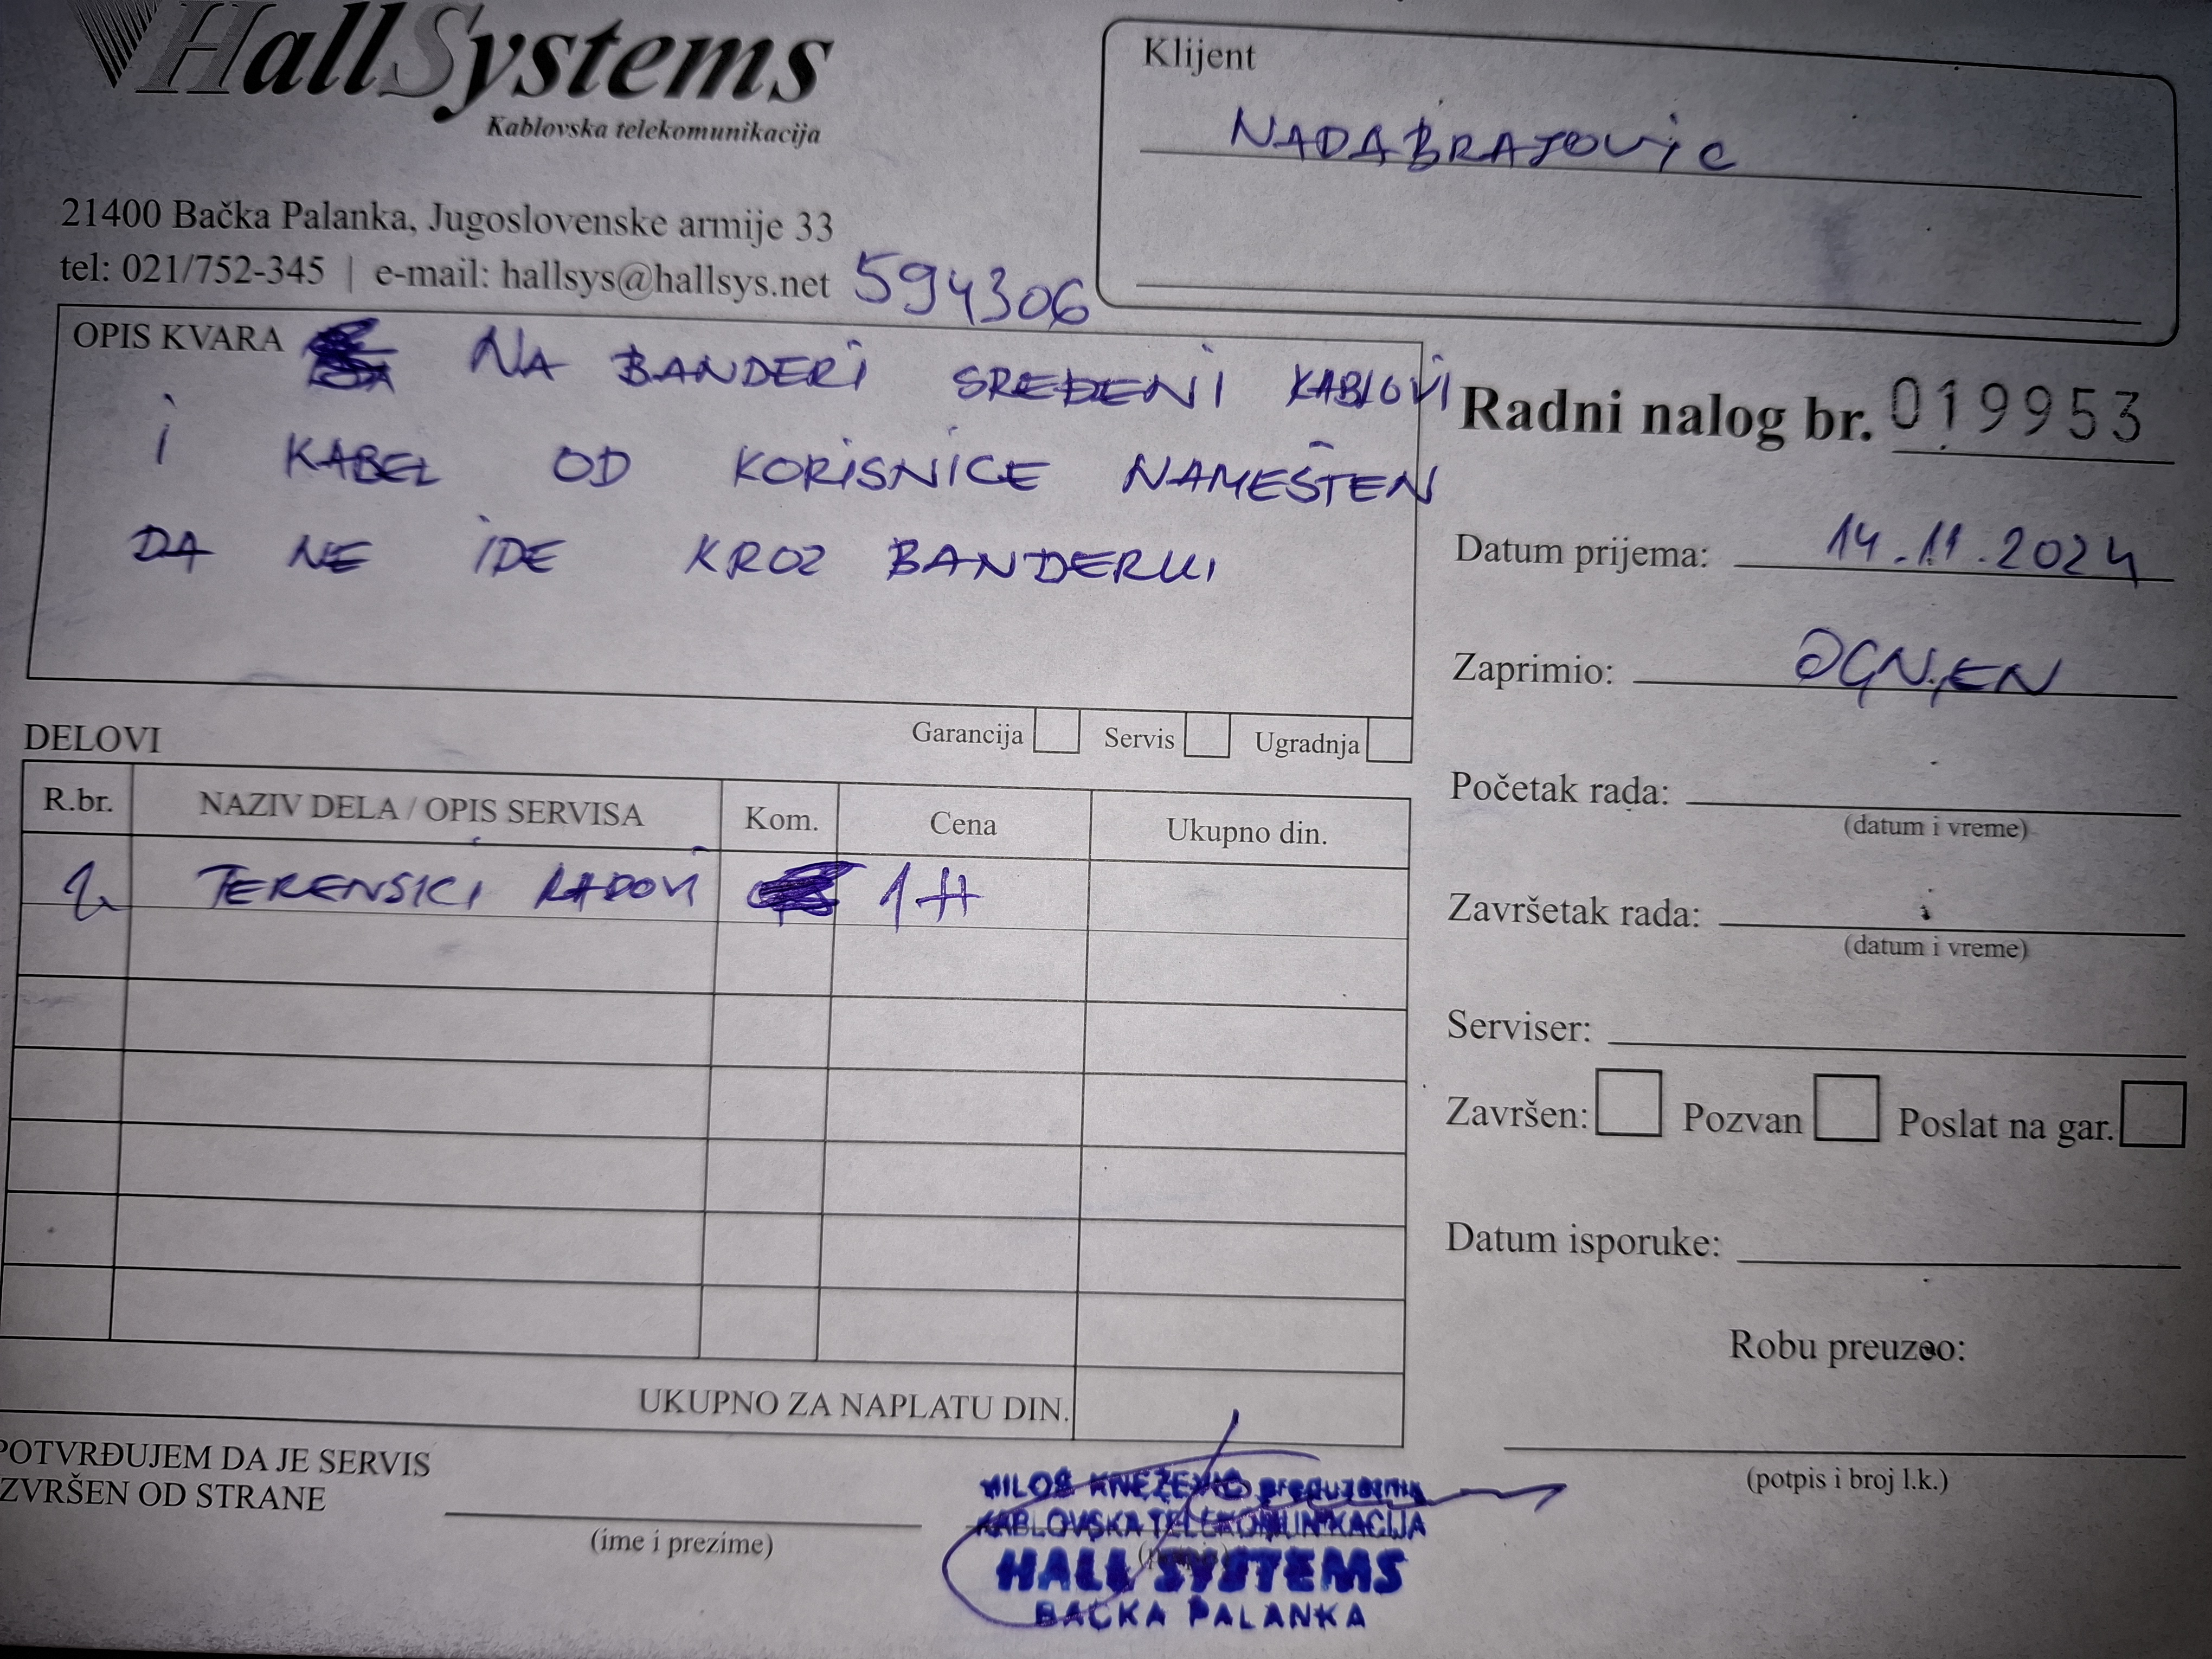 HallSystems
Kablovska telekomunikacija
21400 Bačka Palanka, Jugoslovenske armije 33
tel: 021/752-345 | e-mail: hallsys@hallsys.net 594306
Klijent
NADA BRAJOVIC
OPIS KVARA NA BANDERI SREĐENI KABLOVI
I KABEL OD KORISNICE NAMEŠTEN
DA NE IDE KROZ BANDERU
Garancija Servis Ugradnja
Radni nalog br. 019953
Datum prijema: 14.11.2024
Zaprimio: OGNJEN
Početak rada:
(datum i vreme)
Završetak rada:
(datum i vreme)
Serviser:
Završen: Pozvan Poslat na gar.
Datum isporuke:
Robu preuzeo:
(potpis i broj l.k.)
DELOVI
R.br. NAZIV DELA / OPIS SERVISA Kom. Cena Ukupno din.
TERENSKI RADOVI 1H
UKUPNO ZA NAPLATU DIN.
POTVRĐUJEM DA JE SERVIS
IZVRŠEN OD STRANE
(ime i prezime)
MILOŠ KNEŽEVIĆ preduzetnik
KABLOVSKA TELEKOMUNIKACIJA
HALL SYSTEMS
BAČKA PALANKA